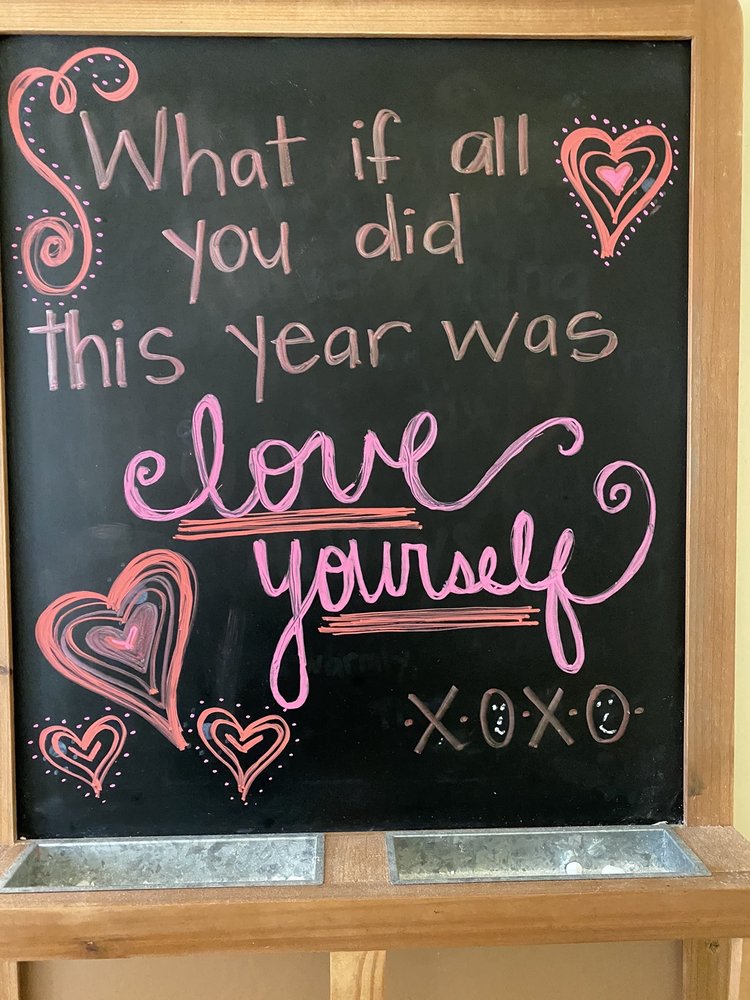 What if all
you did
this year was
love
yourself
X·O·X·O